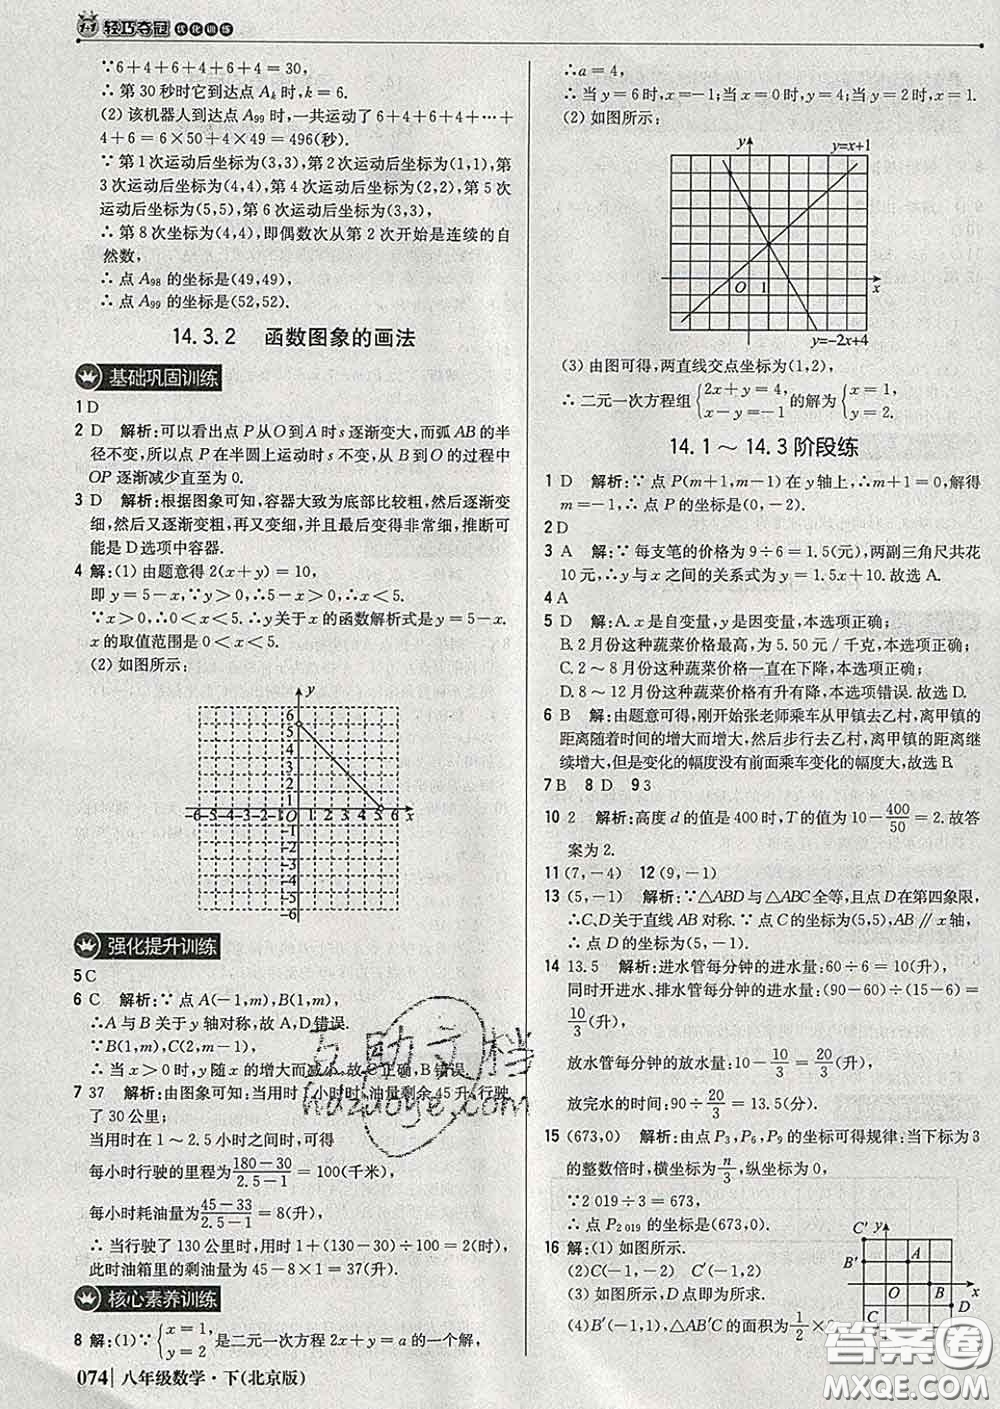 1+1 轻巧夺冠 优化训练
∵6+4+6+4+6+4=30,
∴ 第 30 秒时它到达点 Ak 时,k=6.
(2) 该机器人到达点 A99 时,一共运动了 6+4+6+4+…+
4+6=6×50+4×49=496(秒).
∵ 第 1 次运动后坐标为(3,3),第 2 次运动后坐标为(1,1),第
3 次运动后坐标为(4,4),第 4 次运动后坐标为(2,2),第 5 次
运动后坐标为(5,5),第 6 次运动后坐标为(3,3),
∴ 第 8 次坐标为(4,4),即偶数次从第 2 次开始是连续的自
然数,
∴ 点 A98 的坐标是(49,49),
∴ 点 A99 的坐标是(52,52).
14.3.2 函数图象的画法
基础巩固训练
1 D
2 D 解析:可以看出点 P 从O 到 A 时 s 逐渐变大,而弧 AB 的半
径不变,所以点 P 在半圆上运动时 s 不变,从 B 到 O 的过程中
OP 逐渐减少直至为 0.
3 D 解析:根据图象可知,容器大致为底部比较粗,然后逐渐变
细,然后又逐渐变粗,再又变细,并且最后变得非常细,推断可
能是 D 选项中容器.
4 解:(1) 由题意得 2(x+y)=10,
即 y=5-x,∵y>0,∴5-x>0,∴x<5.
∵x>0,∴0<x<5.∴y 关于 x 的函数解析式是 y=5-x.
x 的取值范围是 0<x<5.
(2) 如图所示:
y
6
5
4
3
2
1
-6-5-4-3-2-1 O 1 2 3 4 5 6 x
-1
-2
-3
-4
-5
-6
强化提升训练
5 C
6 C 解析:∵ 点 A(-1,m),B(1,m),
∴A 与 B 关于 y 轴对称,故 A,D 错误.
∵B(1,m),C(2,m-1),
∴ 当 x>0 时,y 随 x 的增大而减小,故 C 正确,B 错误.
7 37 解析:由图象可知:当用时 1 小时时,油量剩余 45 升,行驶
了 30 公里;
当用时在 1～2.5 小时之间时,可得
每小时行驶的里程为 (180-30)/(2.5-1)=100(千米),
每小时耗油量为 (45-33)/(2.5-1)=8(升),
∴ 当行驶了 130 公里时,用时 1+(130-30)÷100=2(时),
此时油箱里的剩油量为 45-8×1=37(升).
核心素养训练
8 解:(1)∵ {x=1, y=2 是二元一次方程 2x+y=a 的一个解,
074 八年级数学·下(北京版)
∴a=4,
∴ 当 y=6时,x=-1;当 x=0时,y=4;当 y=2时,x=1.
(2) 如图所示:
y y=x+1
O 1 x
y=-2x+4
(3) 由图可得,两直线交点坐标为(1,2),
∴ 二元一次方程组 {2x+y=4, x-y=-1 的解为 {x=1, y=2.
14.1～14.3 阶段练
1 D 解析:∵ 点 P(m+1,m-1)在 y 轴上,∴m+1=0,解得
m=-1,∴ 点 P 的坐标是(0,-2).
2 D
3 A 解:∵ 每支笔的价格为 9÷6=1.5(元),两副三角尺共花
10 元,∴y 与 x 之间的关系式为 y=1.5x+10.故选 A.
4 A
5 D 解:A.x 是自变量,y 是因变量,本选项正确;
B. 2 月份这种蔬菜价格最高,为 5.50 元/千克,本选项正确;
C. 2～8 月份这种蔬菜价格一直在下降,本选项正确;
D. 8～12 月份这种蔬菜价格有升有降,本选项错误.故选 D.
6 B 解:由题意可得,刚开始张老师乘车从甲镇去乙村,离甲镇的
距离随着时间的增大而增大,然后步行去乙村,离甲镇的距离继
续增大,但是变化的幅度没有前面乘车变化的幅度大,故选 B.
7 B 8 D 9 3
10 2 解析:高度 d 的值是 400 时,T 的值为 10-400/50=2.故答
案为 2.
11 (7,-4) 12 (9,-1)
13 (5,-1) 解析:∵△ABD 与△ABC 全等,且点 D 在第四象限,
∴C、D 关于直线 AB 对称.∵ 点 C 的坐标为(5,5),AB∥x 轴,
∴ 点 D 的坐标为(5,-1).
14 13.5 解析:进水管每分钟的进水量:60÷6=10(升),
同时开进水、排水管每分钟的进水量:(90-60)÷(15-6)=
10/3(升),
放水管每分钟的放水量:10-10/3=20/3(升),
放完水的时间:90÷20/3=13.5(分).
15 (673,0) 解析:由点 P3,P6,P9 的坐标可得规律:当下标为 3
的整数倍时,横坐标为 n/3,纵坐标为 0,
∵2 019÷3=673,
∴ 点 P2 019 的坐标是(673,0).
16 解:(1) 如图所示.
(2)C(-1,-2) C′(-1,2)
(3) 如图所示,点 D 点即为所求.
(4)B′(-1,1),△AB′C′ 的面积为 1/2×
C′ y
B′ A
O B x
C D
互助文档
hdzuoye.com
答案圈
MXQE.COM